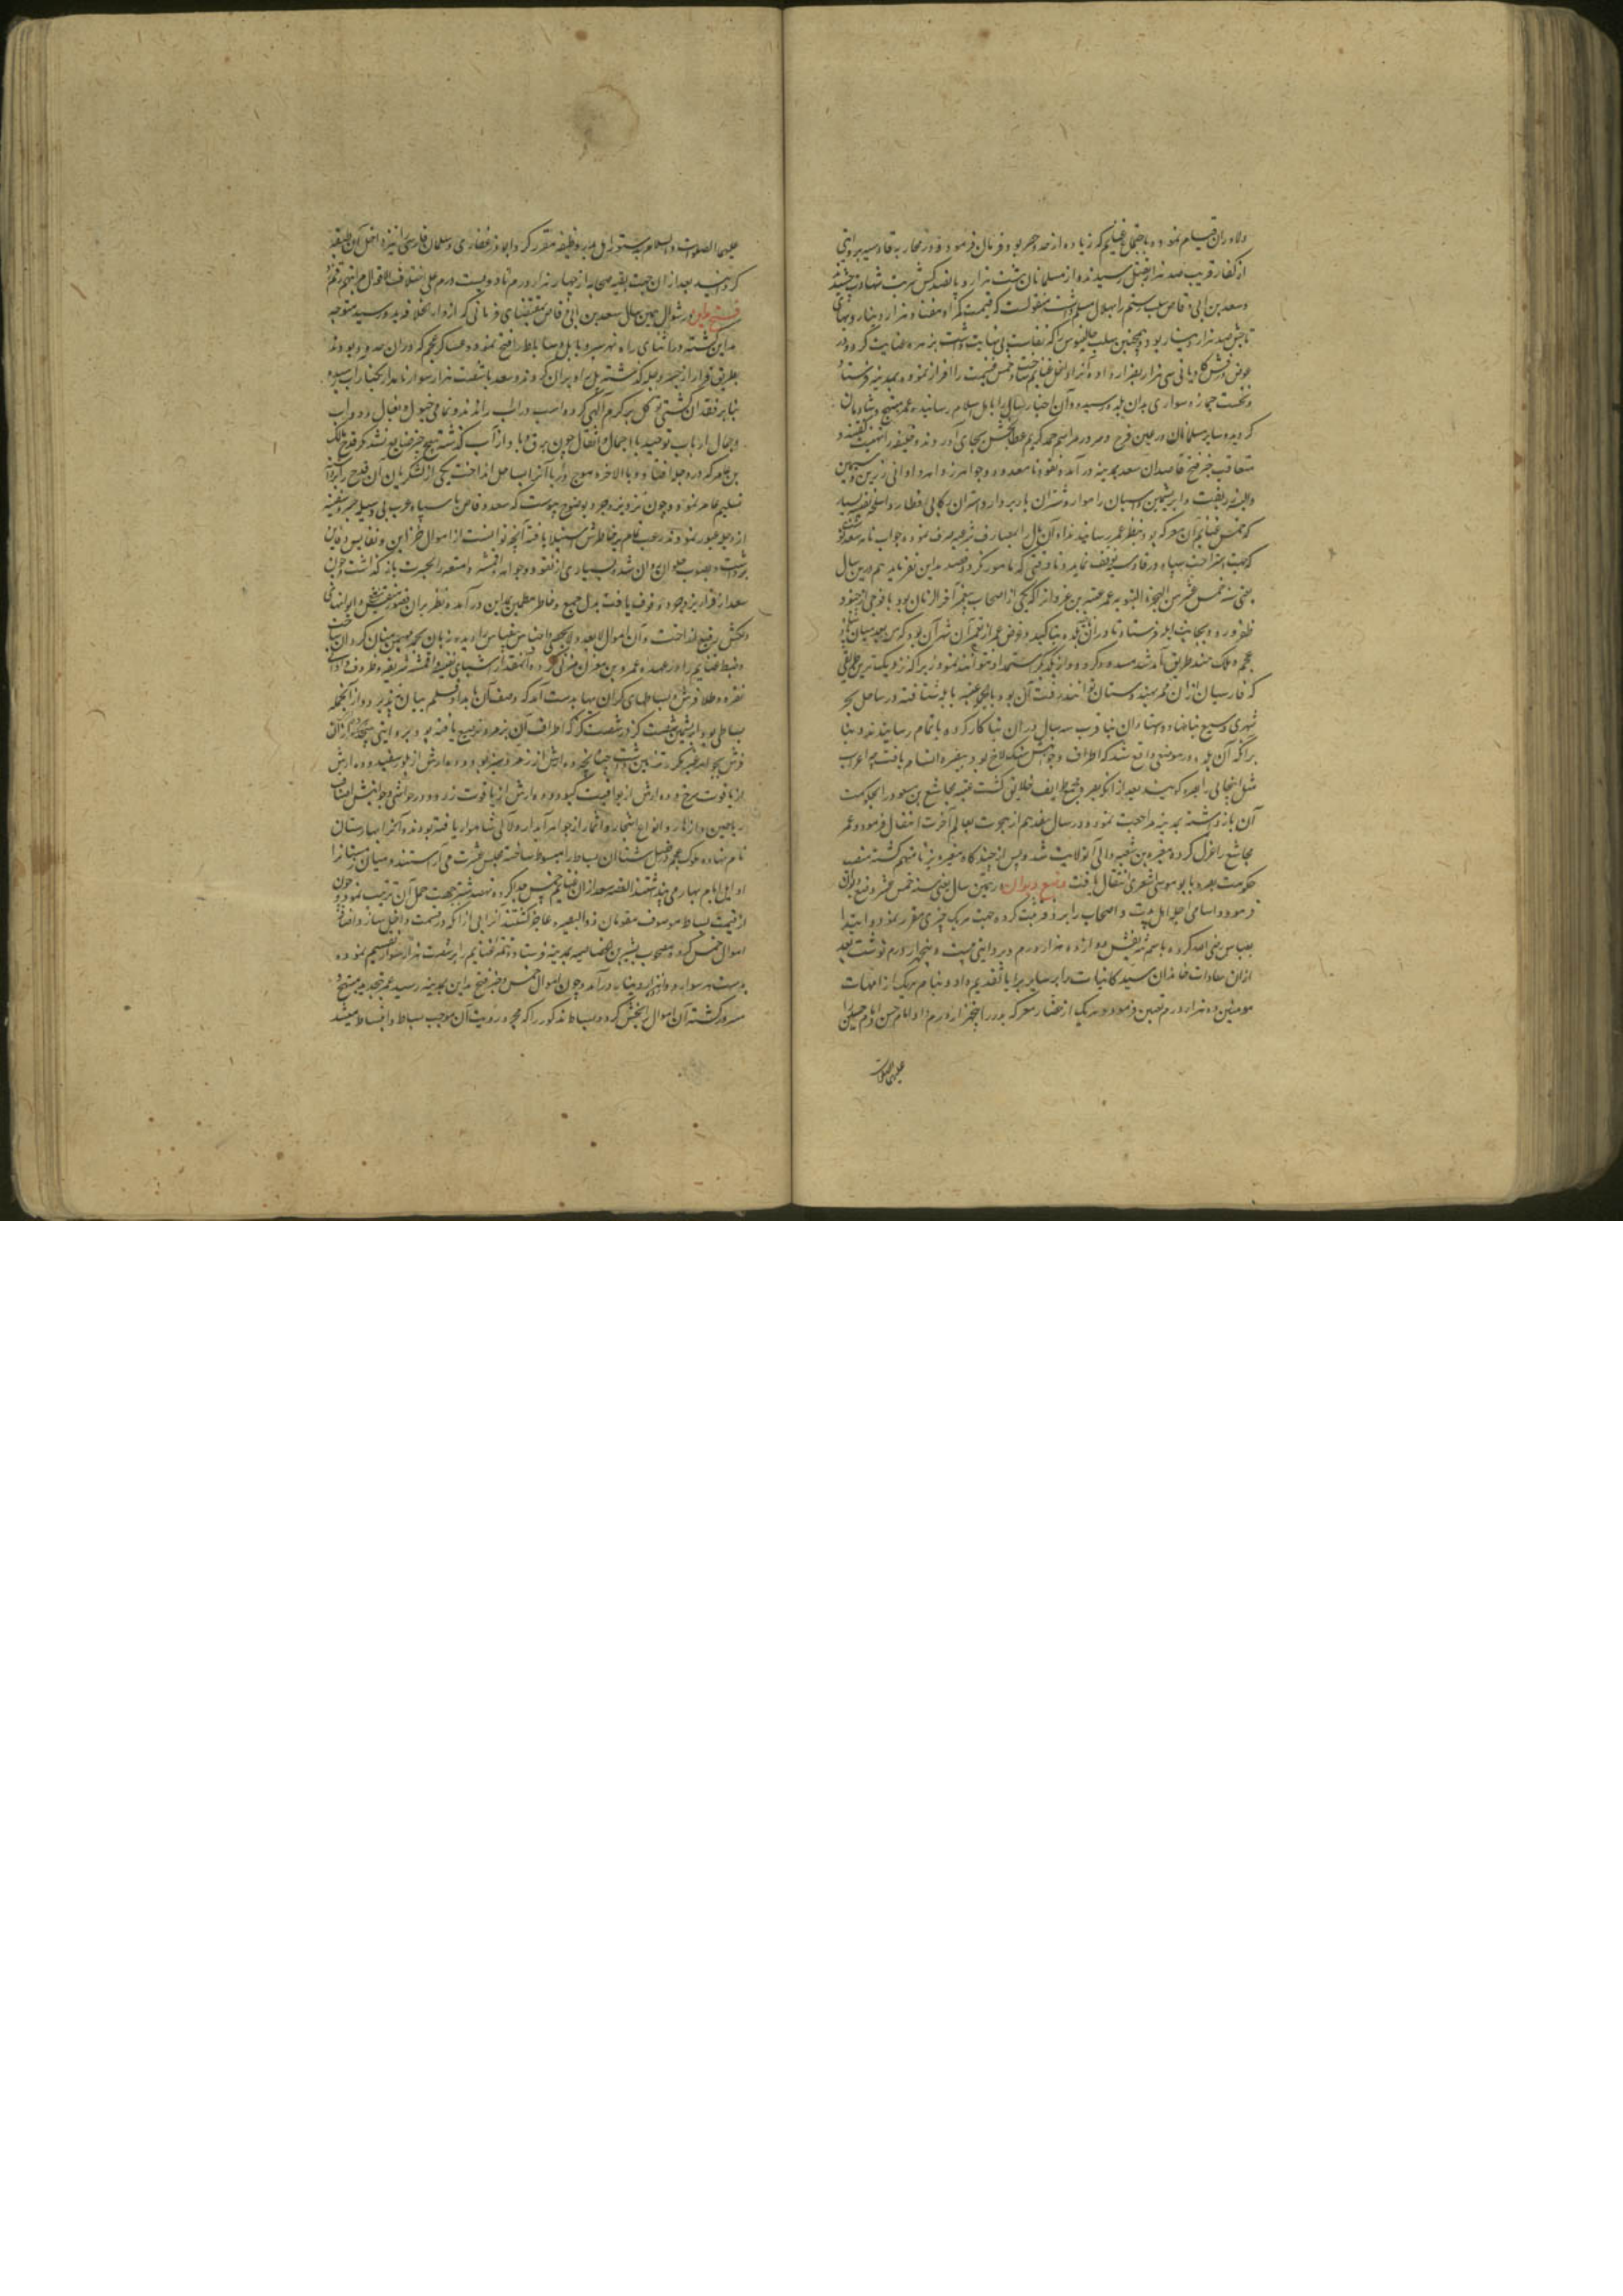 دلاوران قیام نموده باجتماع غنایم که زیاده از حد و حصر بود فرمان فرمود و در محاربه قادسیه بروایتی
از کفار قریب صد هزار بقتل رسیدند و از مسلمانان هشت هزار و پانصد کس شربت شهادت چشیدند
و سعد بن ابی وقاص سلب رستم را بهلال مسلم داشت منقولست که قیمت کمر او هفتاد هزار دینار و بهای
تاجش صد هزار دینار بود و همچنین سلب جالینوس را که نفاست بی نهایت داشت بزهره عنایت کرد و در
عوض درفش کاویانی سی هزار بضرار داده آنرا داخل غنایم ساخت و خمس غنیمت را افراز نموده بمدینه فرستاد
و نخست جمازه سواری بدان بلده رسیده و آن اخبار را باهل اسلام رسانید و عمر مبتهج و شادمان
گردیده و سایر مسلمانان در عین فرح و سرور مراسم حمد کریم عطابخش بجای آوردند و خلیفه را تهنیت گفتند و
متعاقب خبر فتح قاصدان سعد بمدینه درآمده نقود نامعدود و جواهر زواهر و اوانی زرین و سیمین
که خمس غنایم آن معرکه بود بنظر عمر رسانیدند و آن مال را بمصارف شرعیه صرف نموده جواب نامه سعد نوشت
که جهت استراحت سپاه در قادسیه توقف نماید و تا وقتی که مامور نگردد قصد مداین نفرماید هم درین سال
یعنی سنه خمس عشر من الهجرة النبویه عمر عتبه بن غزوان را که یکی از اصحاب پیغمبر آخر الزمان بود با فوجی از جنود
ظفر ورود بجانب ابله فرستاد تا در آن بلده بنا کند و غرض عمر از تعمیر آن شهر آن بود که من بعد میان
عجم و ملک هند طریق آمد شد مسدود گردد و از یکدیگر استمداد نتوانند نمود زیرا که نزدیکترین طریقی
که فارسیان از آن ممر بهندوستان توانند رفت آن بود بالجمله عتبه بابله شتافته در ساحل بحر
شهری وسیع بنا نهاد و استادان بنا قرب سه سال در آن بنا کار کرده باتمام رسانیدند و بنا
برانکه آن بلده در موضعی واقع شد که اطراف و جوانبش سنگلاخ بود ببصره اتسام یافت چه اعراب
مثل آنجائی را بصره گویند و بعد از آنکه بصره مجمع طوایف خلایق گشت عتبه مجاشع بن مسعود را بحکومت
آن بازداشته بمدینه مراجعت نمود و در سال هفدهم از هجرت بعالم آخرت انتقال فرمود و عمر
مجاشع را عزل کرده مغیره بن شعبه والی آن ولایت شد و پس از چندگاه مغیره بزنا متهم گشته منصب
حکومت بصره بابو موسی اشعری انتقال یافت وضع دیوان در همین سال یعنی سنه خمس عشر وضع دیوان
فرمود و اسامی اجله اهل بیت و اصحاب را بر دفتر ثبت کرده جهت هر یک چیزی مقرر نمود و ابتدا
بعباس رضی الله کرده باسم شریفش دوازده هزار درم و بروایتی بیست و پنجهزار درم نوشت بعد
ازان سادات خاندان سید کاینات را بر سایر برایا تقدیم داد و بنام هر یک از امهات
مومنین ده هزار درم تعیین فرمود و هر یک از حضار معرکه بدر را پنجهزار درم داد و امام حسن و امام حسین را
علیهما الصلوات
علیهما الصلوات والسلام بدستور اهل بدر وظیفه مقرر کرد و ابوذر غفاری و سلمان فارسی را نیز داخل این طبقه
گردانید بعد از آن جهت بقیه صحابه از چهار هزار درم تا دویست درم علی اختلاف الاحوال و مراتبهم رقم زد
فتح مداین در شوال همین سال سعد بن ابی وقاص بمقتضای فرمانی که از دار الخلافه بدو رسید متوجه
مداین گشته در اثنای راه نهرشیر و بابل و ساباط را فتح نمود و عساکر عجم که در آن حدود بودند
بطریق فرار از جسر دجله گذشته پل را ویران کردند و سعد با شصت هزار سوار نامدار بکنار آب رسیده
بنابر فقدان کشتی توکل بر کرم الهی کرده اسب در آب راندند و تمامی خیول و بغال و دواب
و جمال ارباب توحید با احمال و اثقال چون برق و باد از آب گذشته هیچ چیز ضایع نشد مگر قدح مالک
بن عامر که در دجله افتاد و بالاخره موج دریا آنرا بساحل انداخت یکی از لشکریان آن قدح را گرفته
تسلیم عامر نمود و چون نزد یزدجرد بوضوح پیوست که سعد وقاص با سپاه عرب بی وسیله جسر و سفینه
از دجله عبور نمودند رعب تمام بر خاطرش استیلا یافته آنچه توانست از اموال و خزاین و نفایس و دفاین
برداشت و بصوب حلوان روان شد و بسیاری از نقود و جواهر و اقمشه و امتعه را بحسرت باز گذاشت و چون
سعد از فرار یزدجرد وقوف یافت بدل جمع و خاطر مطمئن بمداین درآمد و نظر بران قصور منقش و ایوانهای
دلکش رفیع انداخت و آن اموال لاتعد و لاتحصی و اجناس بی قیاس را دیده زبان بحمد مهیمن منان گردان ساخت
و ضبط غنایم را در عهده عمرو بن مقرن مزنی کرد و آنمقدار اشیای نفیسه و اقمشه شریفه و ظروف و اوانی
نقره و طلا و فرش و بساطهای گران بها بدست آمد که وصف آن بامداد قلم بیان نپذیرد و از آنجمله
بساطی بود ابریشمین شصت گز در شصت گز که اطراف آن بزمرد ترصیع یافته بود
از یاقوت سرخ و ده ارش از یواقیت کبود و ده ارش از یاقوت زرد و در حواشی و جوانبش اصناف
ریاحین و ازهار و انواع اشجار و اثمار از جواهر آبدار و لآلی شاهوار یافته بودند و آنرا بهارستان
نام نهاده ملوک عجم در فصل شتا آن بساط را مبسوط ساخته مجلس عشرت می آراستند و میان زمستان را
اوایل ایام بهار می پنداشتند القصه سعد از آن غنایم خمس جدا کرده نهصد شتر جهت حمل آن ترتیب نمود و چون
از قیمت بساط موصوف مقومان ذو البصیره عاجز گشتند آنرا بی آنکه در قسمت داخل سازد اضافه
اموال خمس کرده مصحوب بشیر بن الخصاصیه بمدینه فرستاد و تتمه غنایم را بر شصت هزار سوار تقسیم نموده
بدست هر سوار دوازده هزار دینار درآمد و چون اموال خمس و خبر فتح مداین بمدینه رسید عمر بتجدید مبتهج و
مسرور گشته آن اموال را بخش کرد و بساط مذکور را که مجرد رویت آن موجب نشاط و انبساط میشد